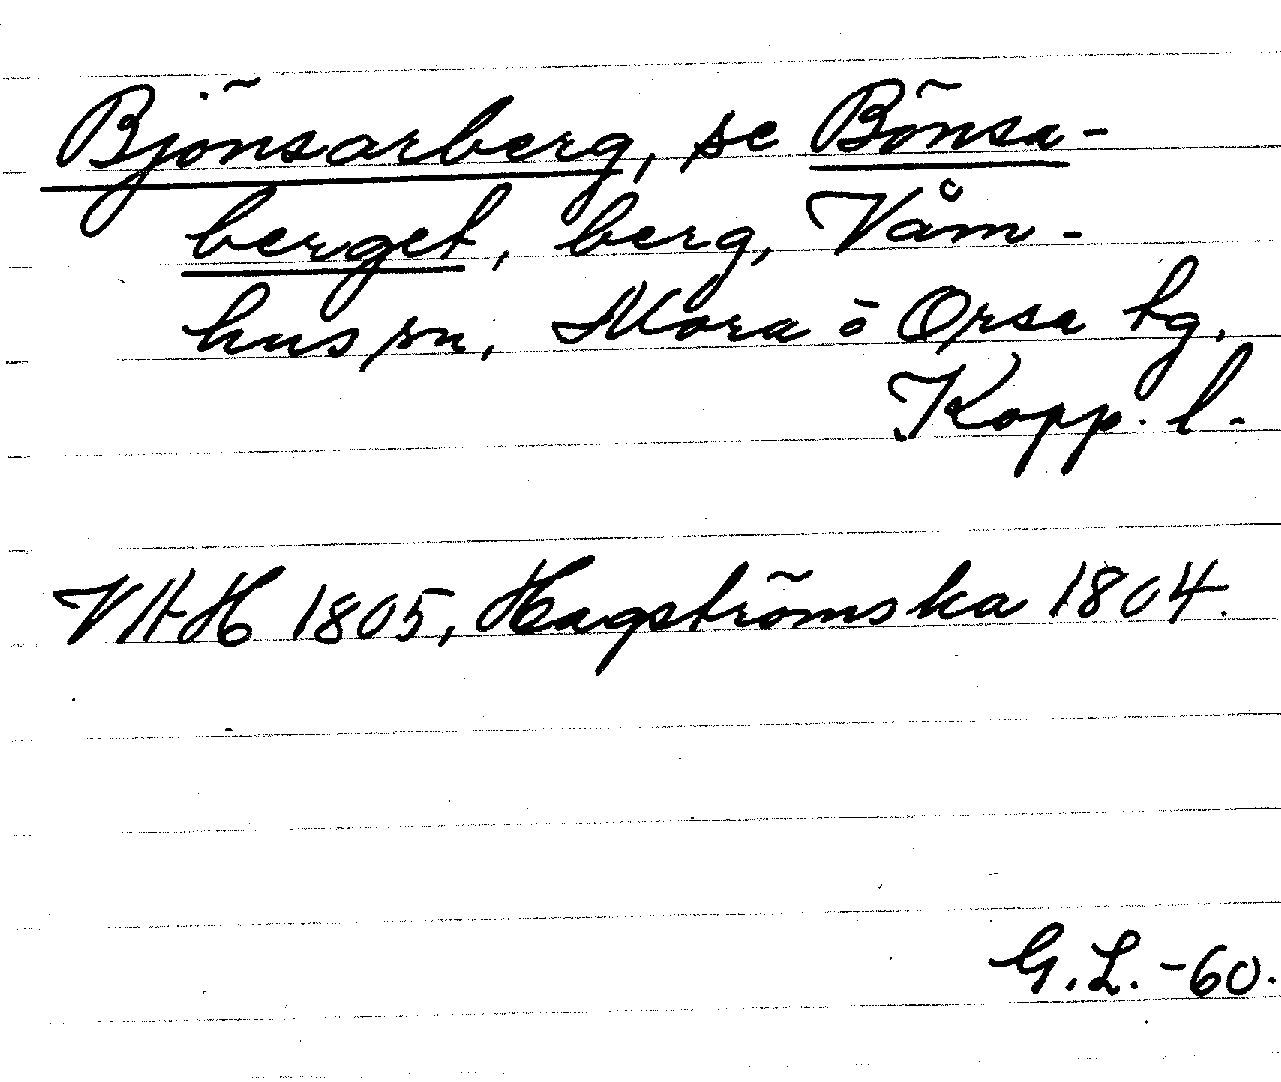 Bjönsarberg, se Bönsa-
berget, berg, Våm-
hus sn, Mora o Orsa tg,
Kopp. l.
VHH 1805, Hagströmska 1804.
G.L. -60.